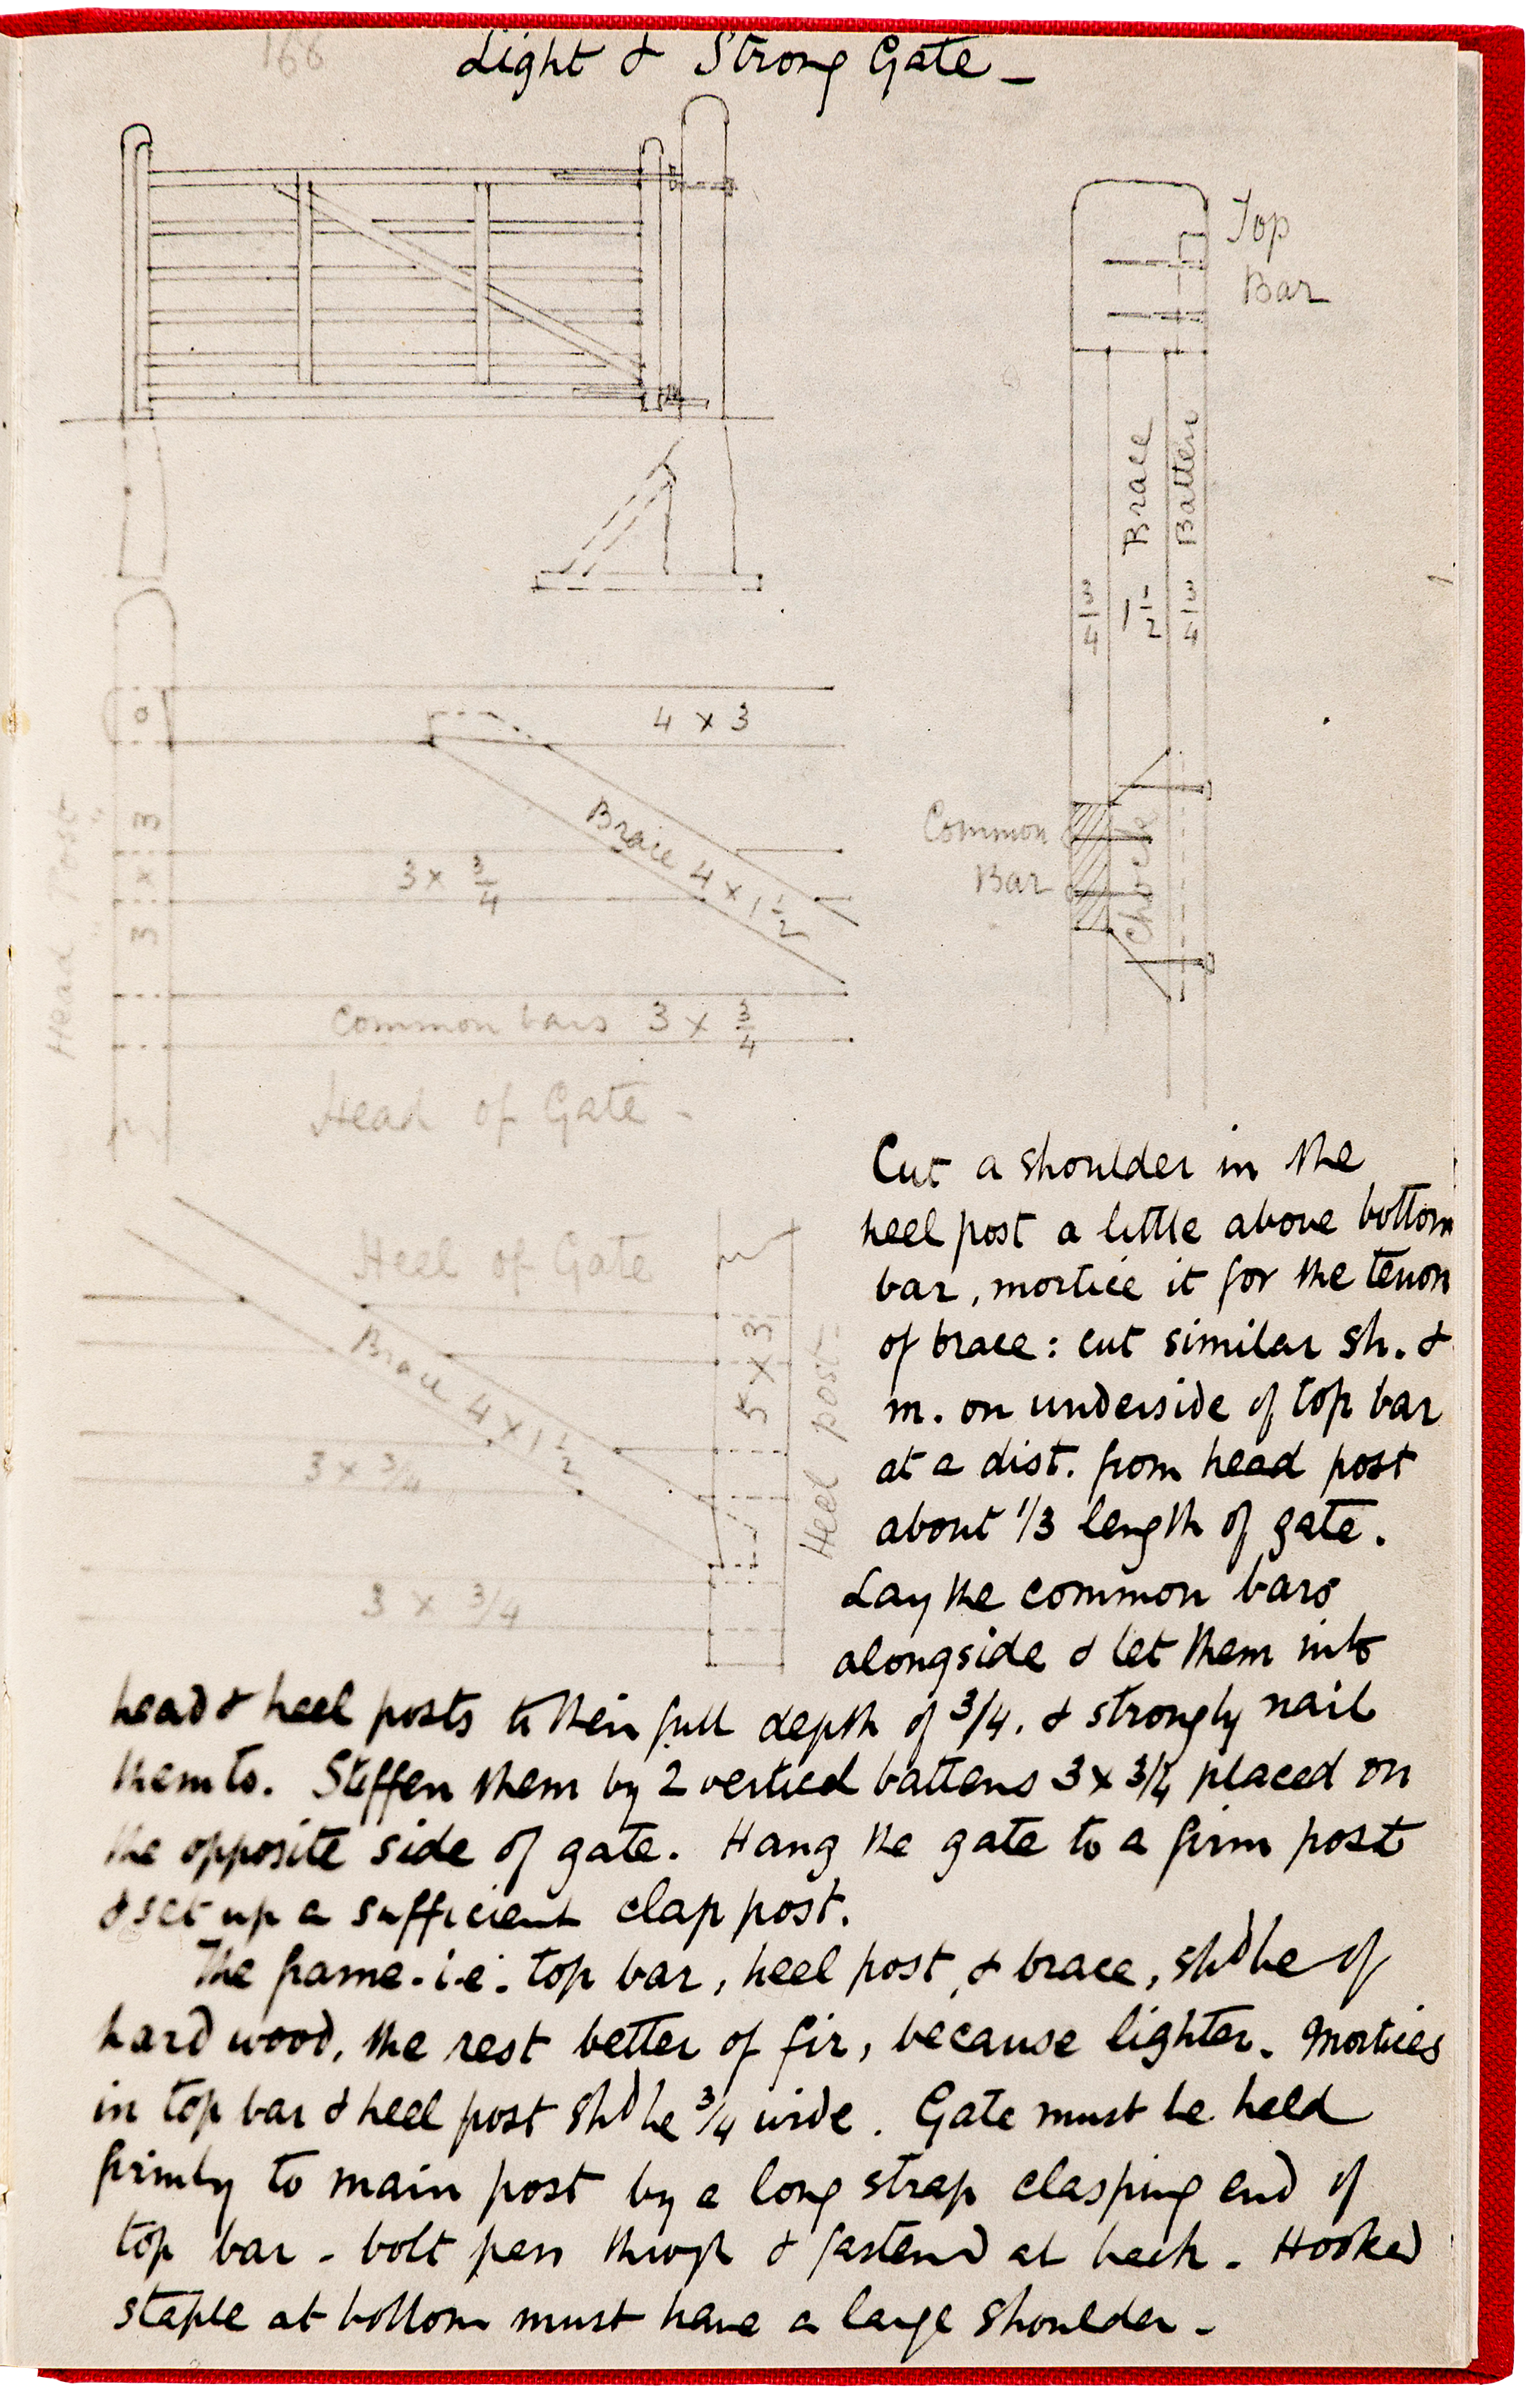 166
Light & Strong Gate -
Top
Bar
Brace
Batten
3/4
1 1/2
3/4
4 x 3
Brace 4 x 1 1/2
3 x 3/4
Head Post
3 x 3
Common
Bar
Chock
Common bars 3 x 3/4
Head of Gate -
Heel of Gate
Brace 4 x 1 1/2
5 x 3
Heel post -
3 x 3/4
3 x 3/4
Cut a shoulder in the
heel post a little above bottom
bar, mortice it for the tenon
of brace: cut similar sh. &
m. on underside of top bar
at a dist. from head post
about 1/3 length of gate.
Lay the common bars
alongside & let them into
head & heel posts to their full depth of 3/4, & strongly nail
them to. Stiffen them by 2 vertical battens 3 x 3/4 placed on
the opposite side of gate. Hang the gate to a firm post
& set up a sufficient clap post.
The frame - i.e. top bar, heel post, & brace, shd be of
hard wood, the rest better of fir, because lighter. Mortices
in top bar & heel post shd be 3/4 wide. Gate must be held
firmly to main post by a long strap clasping end of
top bar - bolt pass through & fastend at back. Hooked
staple at bottom must have a large shoulder -